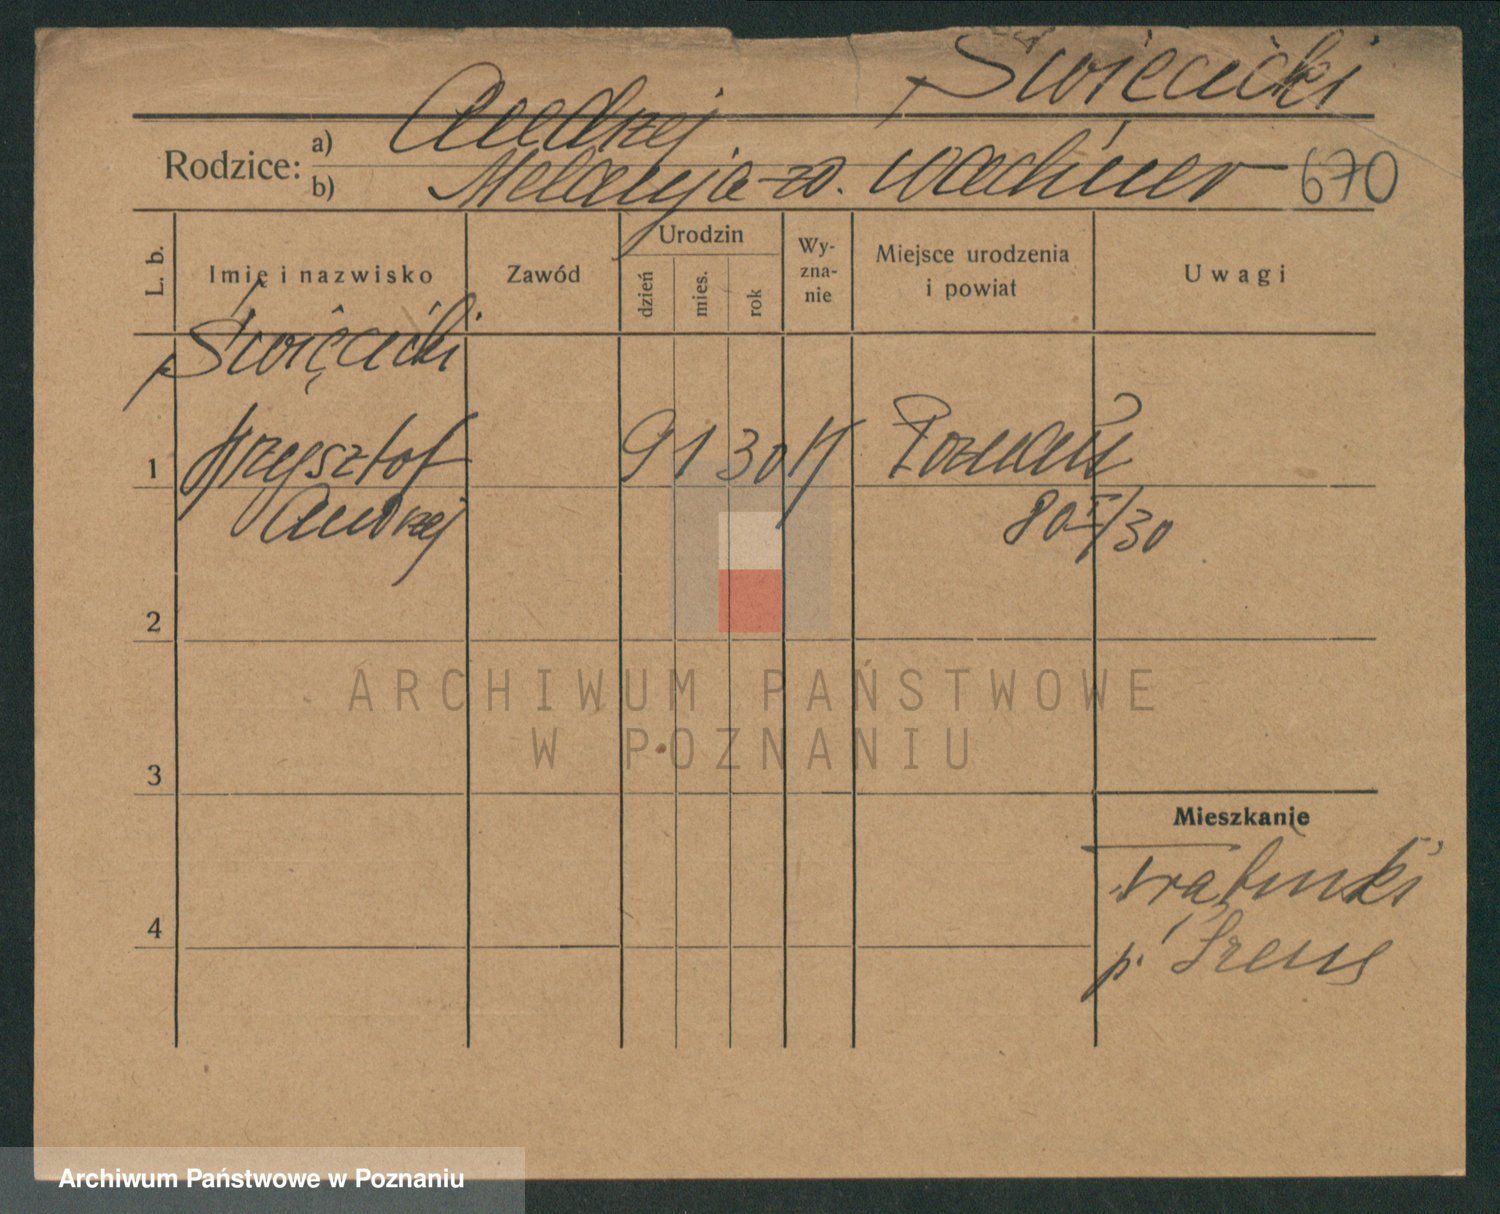 Święcicki
Rodzice:
a) Andrzej
b) Melanja zd. Wachner 670
L. b.
Imię i nazwisko
Zawód
Urodzin
dzień
mies.
rok
Wy-
zna-
nie
Miejsce urodzenia
i powiat
Uwagi
Święcicki
1 Krzysztof 9 1 30 K Poznań
Andrzej
2
3
4
Mieszkanie
ARCHIWUM PAŃSTWOWE
W POZNANIU
Archiwum Państwowe w Poznaniu